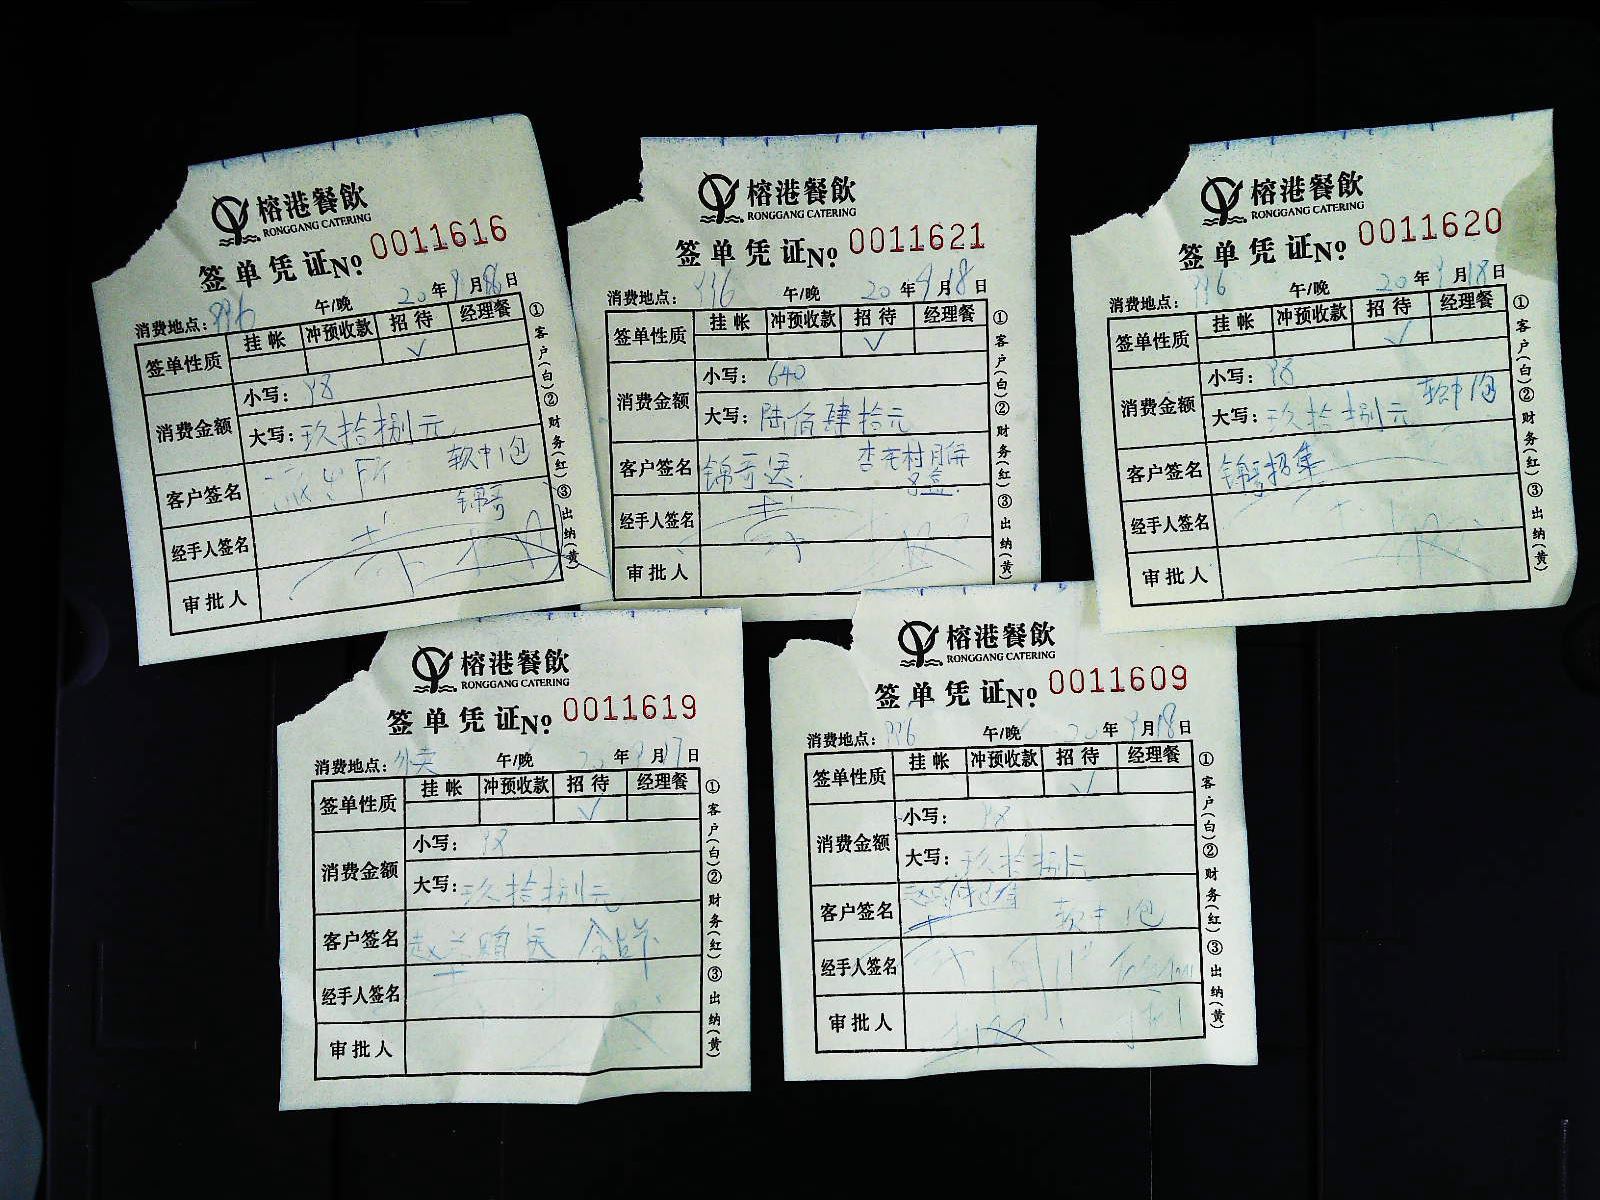 榕港餐飲
RONGGANG CATERING
签单凭证No 0011616
消费地点: 996 午/晚 20年9月18日
签单性质 挂帐 冲预收款 招待 经理餐
√
消费金额 小写: 98
大写: 玖拾捌元
客户签名 派出所 软中1包
锦哥
经手人签名
审批人
①客户(白)②财务(红)③出纳(黄)
榕港餐飲
RONGGANG CATERING
签单凭证No 0011621
消费地点: 996 午/晚 20年9月18日
签单性质 挂帐 冲预收款 招待 经理餐
√
消费金额 小写: 640
大写: 陆佰肆拾元
客户签名 锦哥送
经手人签名
审批人
①客户(白)②财务(红)③出纳(黄)
榕港餐飲
RONGGANG CATERING
签单凭证No 0011620
消费地点: 996 午/晚 20年9月18日
签单性质 挂帐 冲预收款 招待 经理餐
√
消费金额 小写: 98
大写: 玖拾捌元 软中1包
客户签名 锦哥招集
经手人签名
审批人
①客户(白)②财务(红)③出纳(黄)
榕港餐飲
RONGGANG CATERING
签单凭证No 0011619
消费地点: 外卖 午/晚 20年9月17日
签单性质 挂帐 冲预收款 招待 经理餐
√
消费金额 小写: 98
大写: 玖拾捌元
客户签名
经手人签名
审批人
①客户(白)②财务(红)③出纳(黄)
榕港餐飲
RONGGANG CATERING
签单凭证No 0011609
消费地点: 996 午/晚 20年9月18日
签单性质 挂帐 冲预收款 招待 经理餐
√
消费金额 小写: 98
大写: 玖拾捌元
客户签名 软中1包
经手人签名
审批人
①客户(白)②财务(红)③出纳(黄)